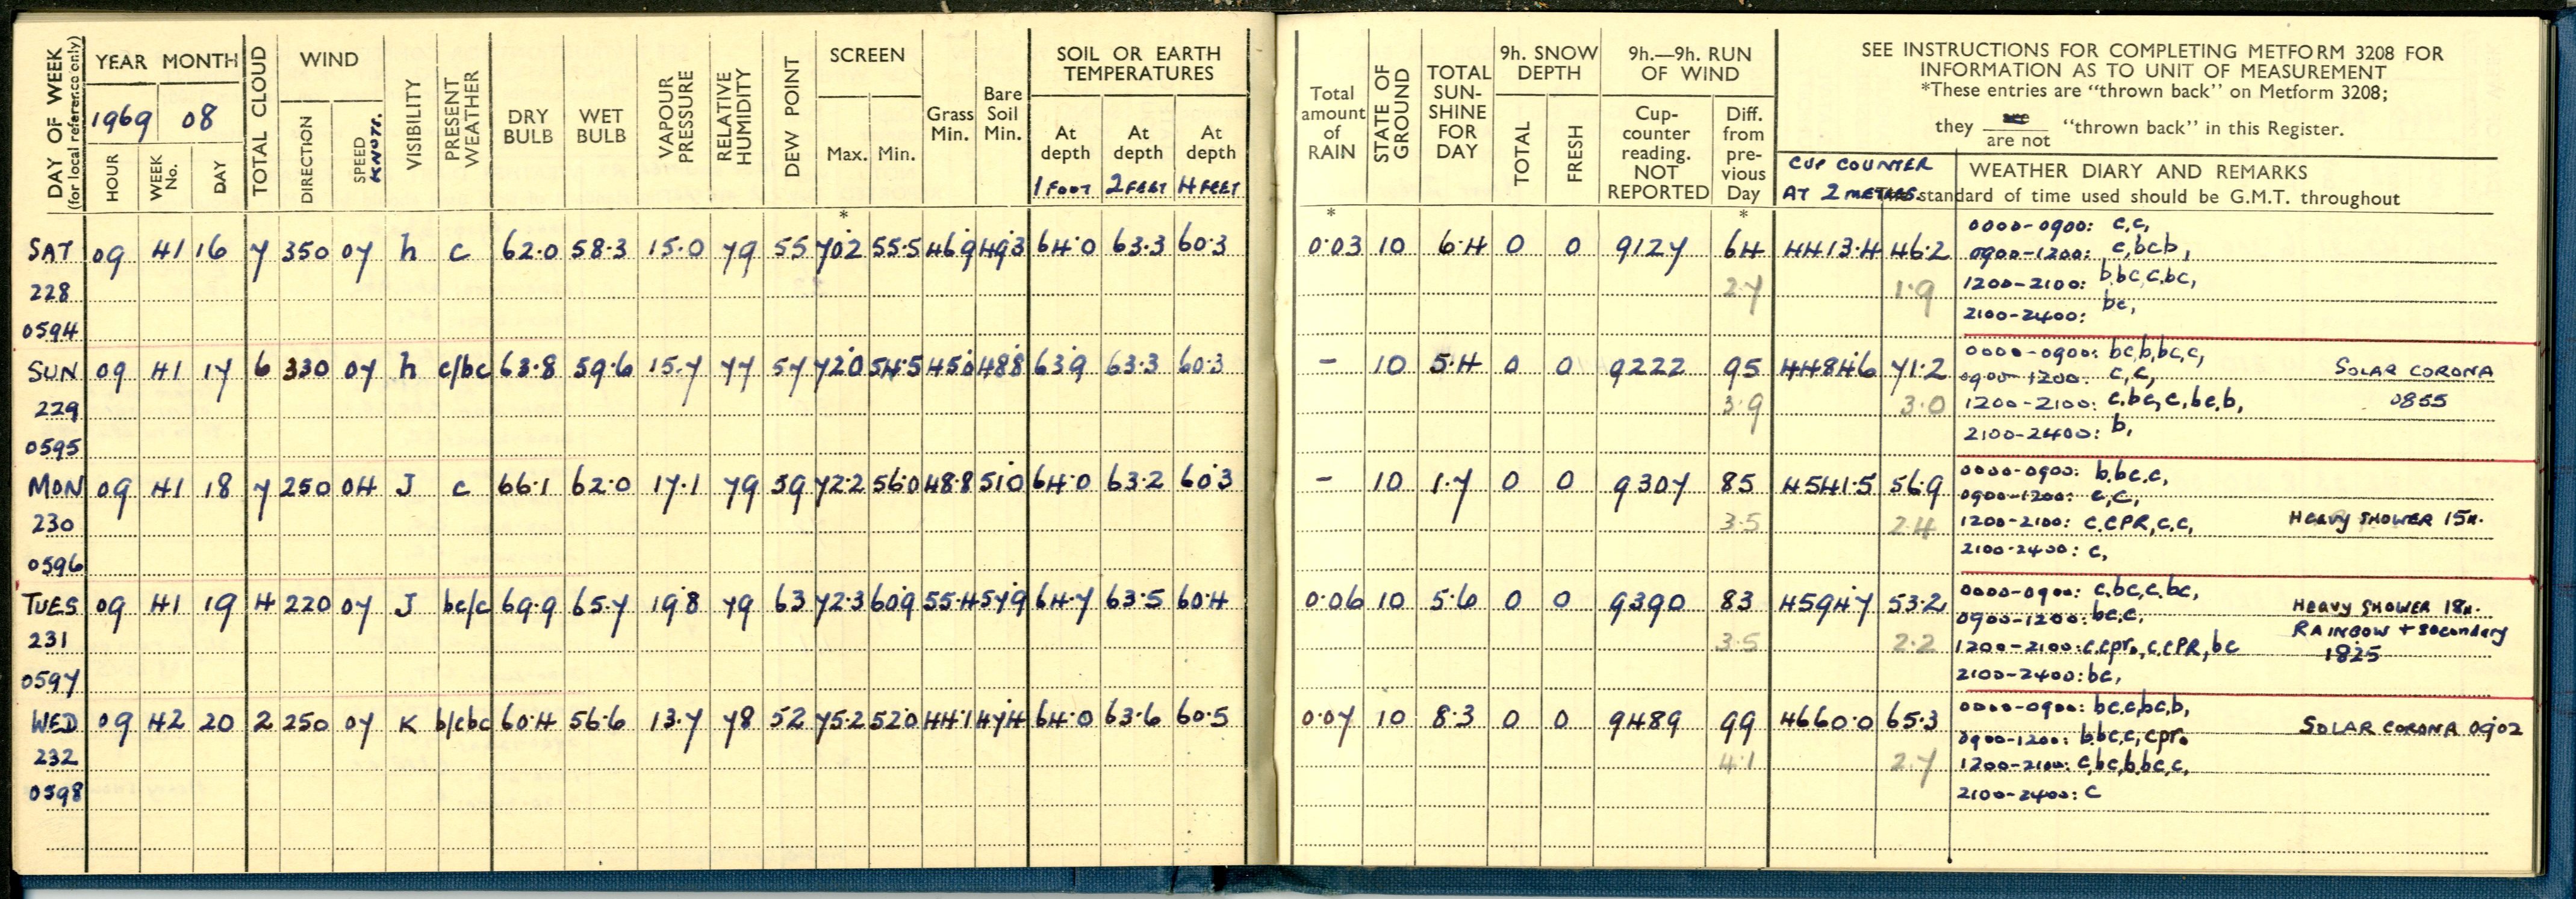 DAY OF WEEK
(for local reference only)
YEAR MONTH
1969 08
HOUR
WEEK No.
DAY
TOTAL CLOUD
WIND
DIRECTION
SPEED KNOTS.
VISIBILITY
PRESENT WEATHER
DRY BULB
WET BULB
VAPOUR PRESSURE
RELATIVE HUMIDITY
DEW POINT
SCREEN
Max. Min.
Grass Min.
Bare Soil Min.
SOIL OR EARTH TEMPERATURES
At depth 1 FOOT
At depth 2 FEET
At depth 4 FEET
Total amount of RAIN
STATE OF GROUND
TOTAL SUN-SHINE FOR DAY
9h. SNOW DEPTH
TOTAL
FRESH
9h.—9h. RUN OF WIND
Cup-counter reading. NOT REPORTED
Diff. from pre-vious Day
SEE INSTRUCTIONS FOR COMPLETING METFORM 3208 FOR
INFORMATION AS TO UNIT OF MEASUREMENT
*These entries are "thrown back" on Metform 3208;
they are are not "thrown back" in this Register.
CUP COUNTER
AT 2 METRES.
WEATHER DIARY AND REMARKS
standard of time used should be G.M.T. throughout
* * *
SAT 09 41 16 7 350 07 h c 62.0 58.3 15.0 79 55 70.2 55.5 46.9 49.3 64.0 63.3 60.3 0.03 10 6.4 0 0 9127 64 4413.4 46.2
0000-0900: c,c,
0900-1200: c,bcb,
228 2.7 1.9 1200-2100: b,bc,c,bc,
0594 2100-2400: bc,
SUN 09 41 17 6 330 07 h c/bc 63.8 59.6 15.7 77 57 72.0 54.5 45.0 48.8 63.9 63.3 60.3 - 10 5.4 0 0 9222 95 4484.6 71.2
0000-0900: bc,b,bc,c,
0900-1200: c,c,
SOLAR CORONA
0855
229 3.9 3.0 1200-2100: c,bc,c,bc,b,
0595 2100-2400: b,
MON 09 41 18 7 250 04 J c 66.1 62.0 17.1 79 59 72.2 56.0 48.8 51.0 64.0 63.2 60.3 - 10 1.7 0 0 9307 85 4541.5 56.9
0000-0900: b,bc,c,
0900-1200: c,c,
230 3.5 2.4 1200-2100: c,cPR,c,c, Heavy SHOWER 15H.
0596 2100-2400: c,
TUES 09 41 19 4 220 07 J bc/c 69.9 65.7 19.8 79 63 72.3 60.9 55.4 57.9 64.7 63.5 60.4 0.06 10 5.6 0 0 9390 83 4594.7 53.2
0000-0900: c,bc,c,bc,
0900-1200: bc,c,
Heavy SHOWER 18H.
RAINBOW + secondary
1825
231 3.5 2.2 1200-2100: c,cpr₀,c,cPR,bc
0597 2100-2400: bc,
WED 09 42 20 2 250 07 K b/cbc 60.4 56.6 13.7 78 52 75.2 52.0 44.1 47.4 64.0 63.6 60.5 0.07 10 8.3 0 0 9489 99 4660.0 65.3
0000-0900: bc,c,bc,b,
0900-1200: b,bc,c,cpr₀
SOLAR CORONA 0902
232 4.1 2.7 1200-2100: c,bc,b,bc,c,
0598 2100-2400: c